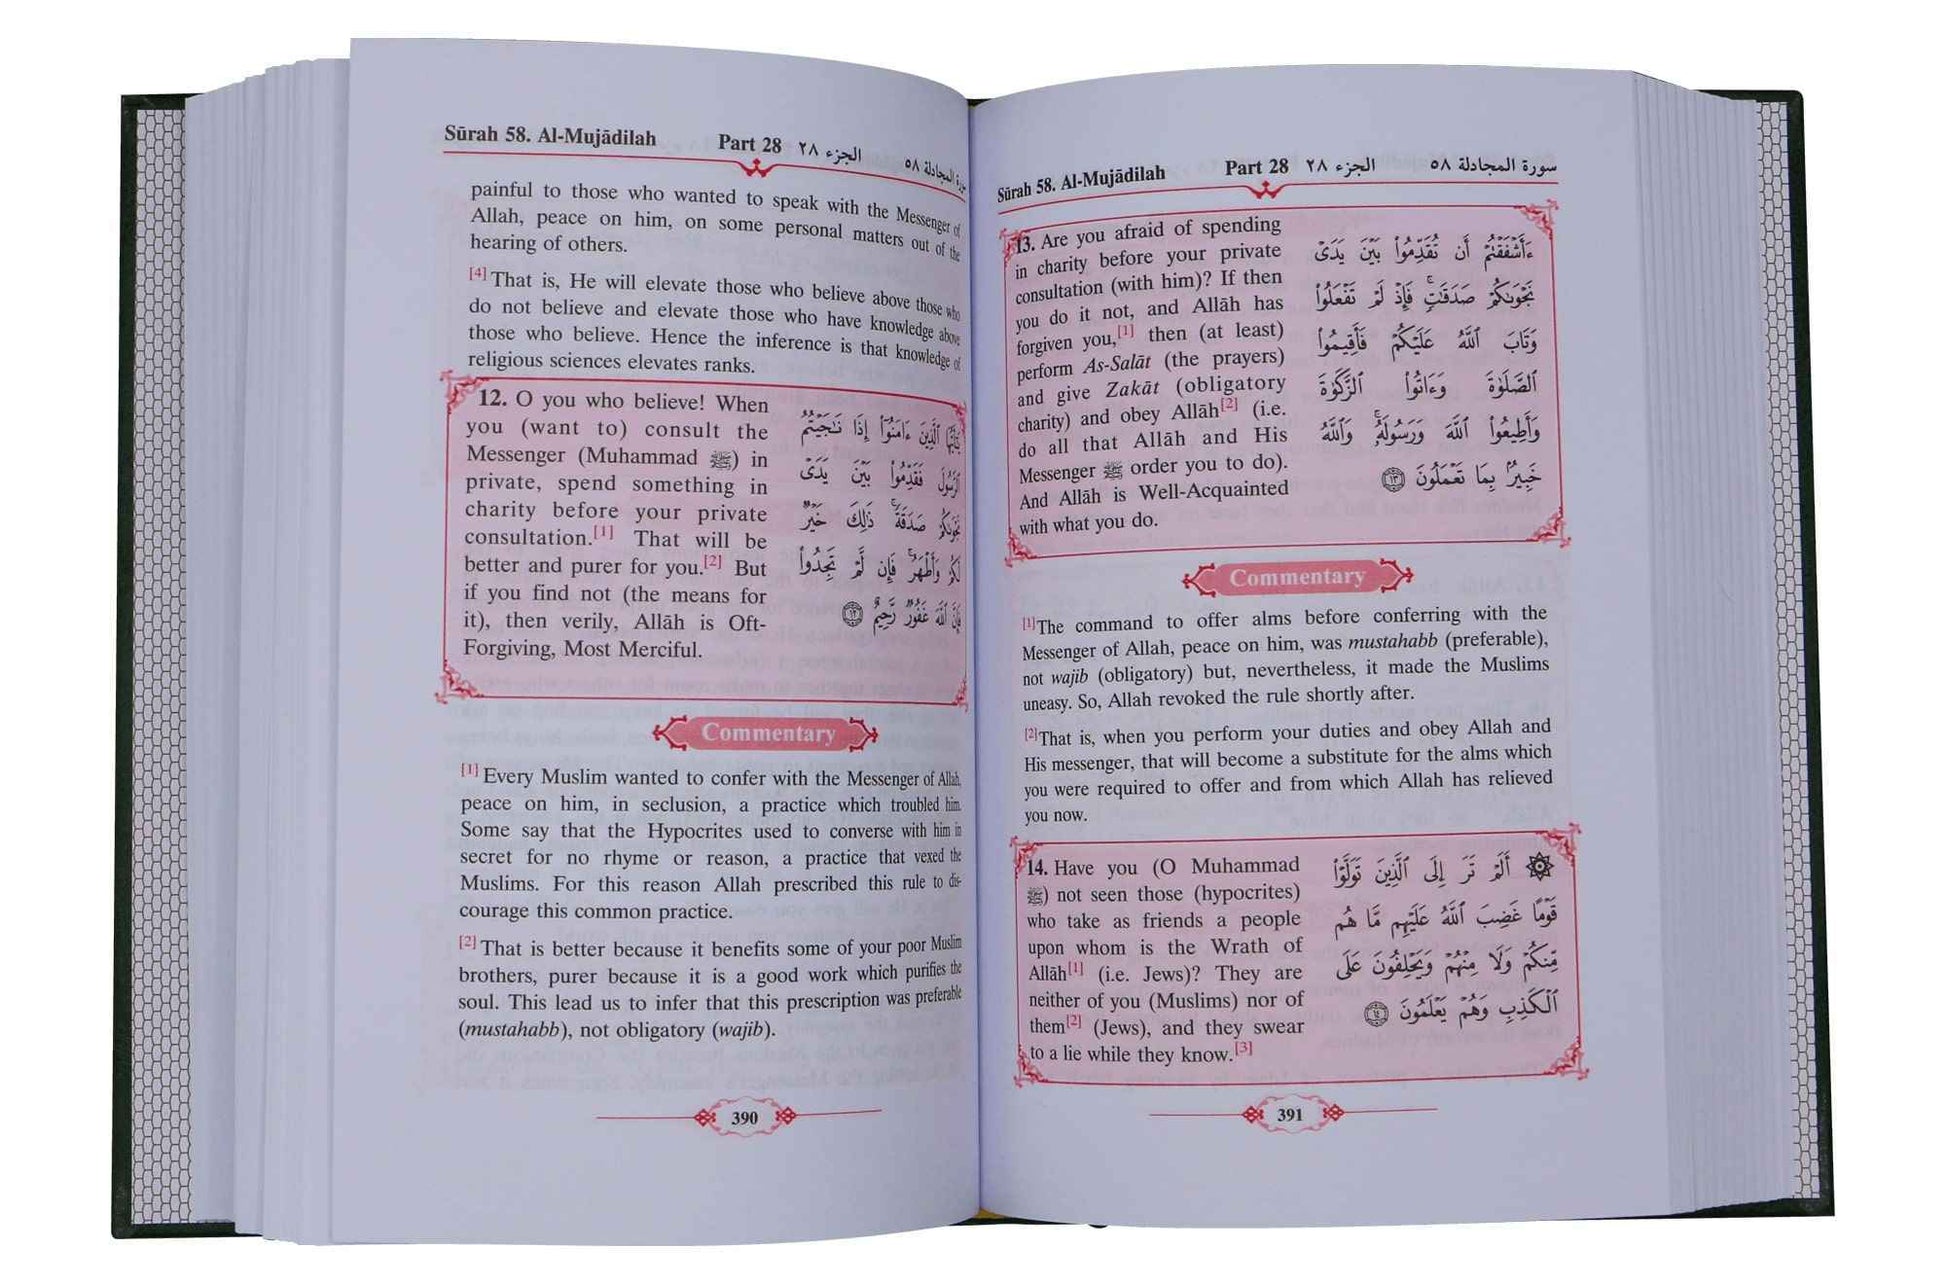 Sūrah 58. Al-Mujādilah Part 28 الجزء ٢٨ المجادلة ٥٨
painful to those who wanted to speak with the Messenger of
Allah, peace on him, on some personal matters out of the
hearing of others.
[4] That is, He will elevate those who believe above those who
do not believe and elevate those who have knowledge above
those who believe. Hence the inference is that knowledge of
religious sciences elevates ranks.
12. O you who believe! When
you (want to) consult the
Messenger (Muhammad ﷺ) in
private, spend something in
charity before your private
consultation.[1] That will be
better and purer for you.[2] But
if you find not (the means for
it), then verily, Allāh is Oft-
Forgiving, Most Merciful.
ٱلَّذِينَ ءَامَنُوٓا۟ إِذَا نَـٰجَيْتُمُ
ٱلرَّسُولَ فَقَدِّمُوا۟ بَيْنَ يَدَىْ
نَجْوَىٰكُمْ صَدَقَةً ۚ ذَٰلِكَ خَيْرٌ
لَّكُمْ وَأَطْهَرُ ۚ فَإِن لَّمْ تَجِدُوا۟
فَإِنَّ ٱللَّهَ غَفُورٌ رَّحِيمٌ ١٢
Commentary
[1] Every Muslim wanted to confer with the Messenger of Allah,
peace on him, in seclusion, a practice which troubled him.
Some say that the Hypocrites used to converse with him in
secret for no rhyme or reason, a practice that vexed the
Muslims. For this reason Allah prescribed this rule to dis-
courage this common practice.
[2] That is better because it benefits some of your poor Muslim
brothers, purer because it is a good work which purifies the
soul. This lead us to infer that this prescription was preferable
(mustahabb), not obligatory (wajib).
390
Sūrah 58. Al-Mujādilah Part 28 الجزء ٢٨ سورة المجادلة ٥٨
13. Are you afraid of spending
in charity before your private
consultation (with him)? If then
you do it not, and Allāh has
forgiven you,[1] then (at least)
perform As-Salāt (the prayers)
and give Zakāt (obligatory
charity) and obey Allāh[2] (i.e.
do all that Allāh and His
Messenger ﷺ order you to do).
And Allāh is Well-Acquainted
with what you do.
ءَأَشْفَقْتُمْ أَن تُقَدِّمُوا۟ بَيْنَ يَدَىْ
نَجْوَىٰكُمْ صَدَقَـٰتٍ ۚ فَإِذْ لَمْ تَفْعَلُوا۟
وَتَابَ ٱللَّهُ عَلَيْكُمْ فَأَقِيمُوا۟
ٱلصَّلَوٰةَ وَءَاتُوا۟ ٱلزَّكَوٰةَ
وَأَطِيعُوا۟ ٱللَّهَ وَرَسُولَهُۥ ۚ وَٱللَّهُ
خَبِيرٌۢ بِمَا تَعْمَلُونَ ١٣
Commentary
[1]The command to offer alms before conferring with the
Messenger of Allah, peace on him, was mustahabb (preferable),
not wajib (obligatory) but, nevertheless, it made the Muslims
uneasy. So, Allah revoked the rule shortly after.
[2]That is, when you perform your duties and obey Allah and
His messenger, that will become a substitute for the alms which
you were required to offer and from which Allah has relieved
you now.
14. Have you (O Muhammad
ﷺ) not seen those (hypocrites)
who take as friends a people
upon whom is the Wrath of
Allāh[1] (i.e. Jews)? They are
neither of you (Muslims) nor of
them[2] (Jews), and they swear
to a lie while they know.[3]
۞ أَلَمْ تَرَ إِلَى ٱلَّذِينَ تَوَلَّوْا۟
قَوْمًا غَضِبَ ٱللَّهُ عَلَيْهِم مَّا هُم
مِّنكُمْ وَلَا مِنْهُمْ وَيَحْلِفُونَ عَلَى
ٱلْكَذِبِ وَهُمْ يَعْلَمُونَ ١٤
391